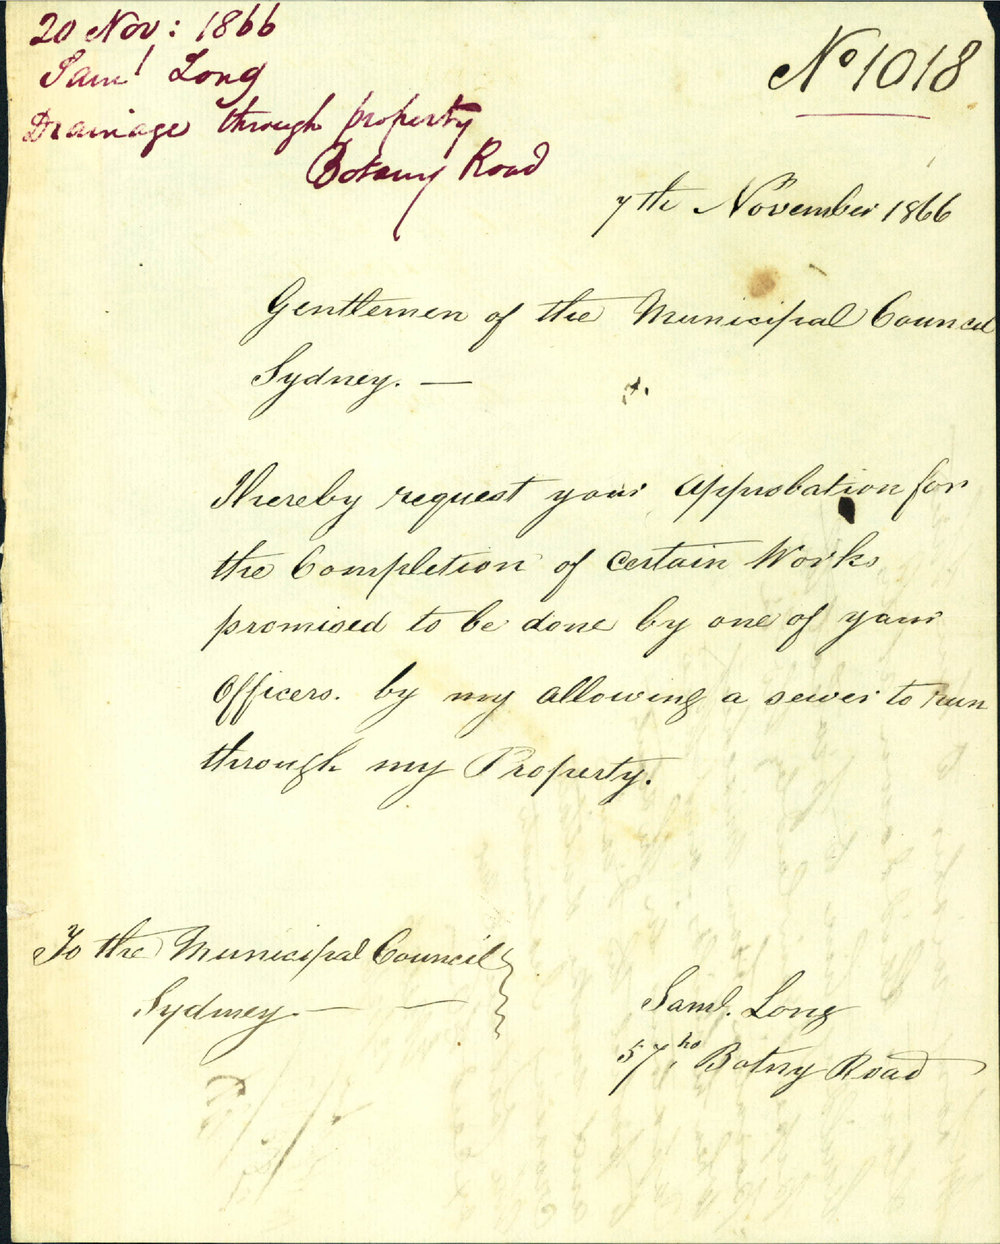 20 Nov: 1866
Saml Long
Drainage through property
Botany Road
No 1018
7th November 1866
Gentlemen of the Municipal Council
Sydney. —
I hereby request your approbation for
the Completion of Certain Works
promised to be done by one of your
Officers. by my allowing a sewer to run
through my Property.
To the Municipal Council
Sydney. — —
Saml. Long
57, ho Botny Road